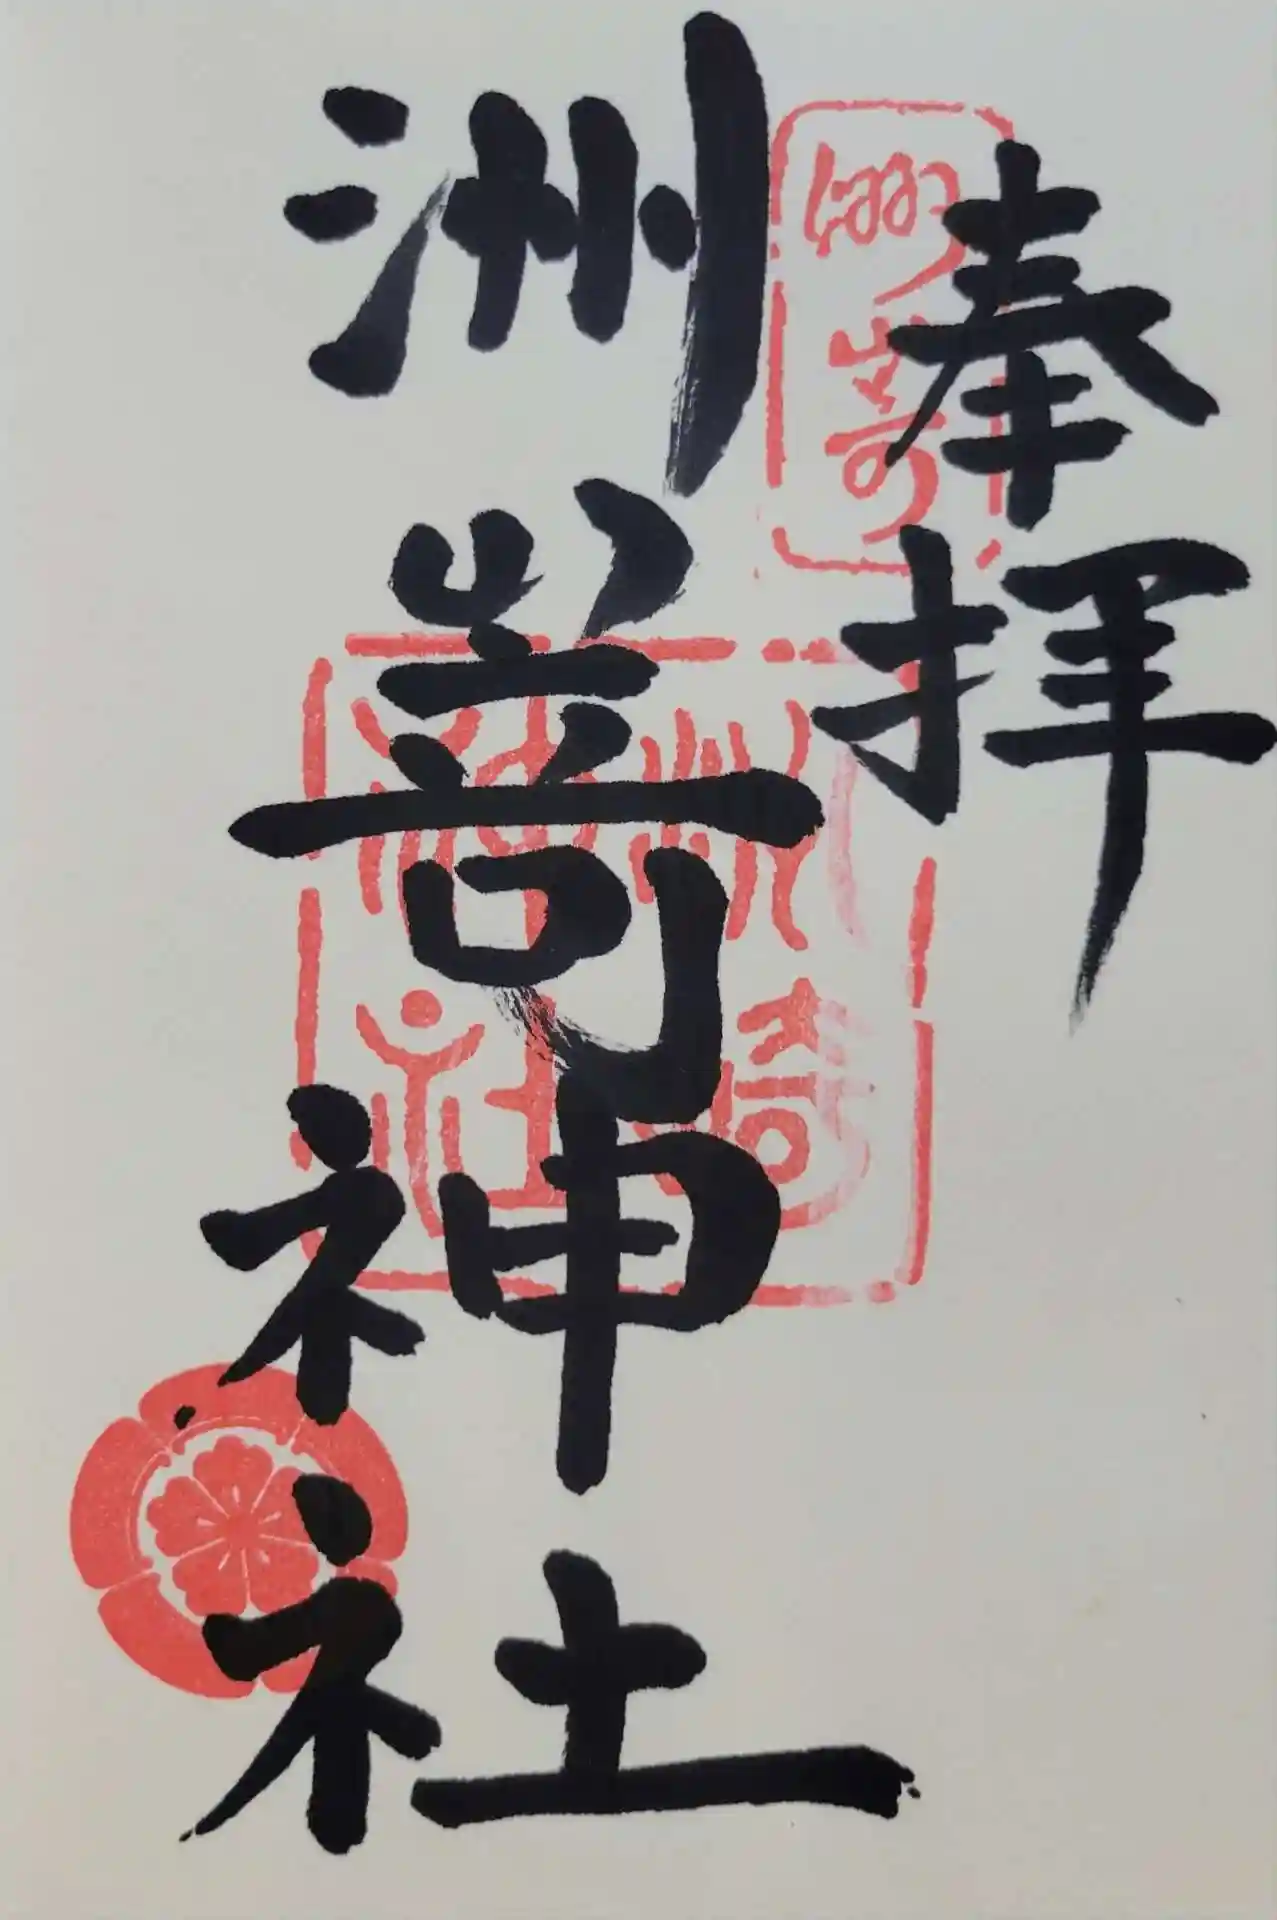 奉拝
洲嵜神社
洲嵜
洲崎神社